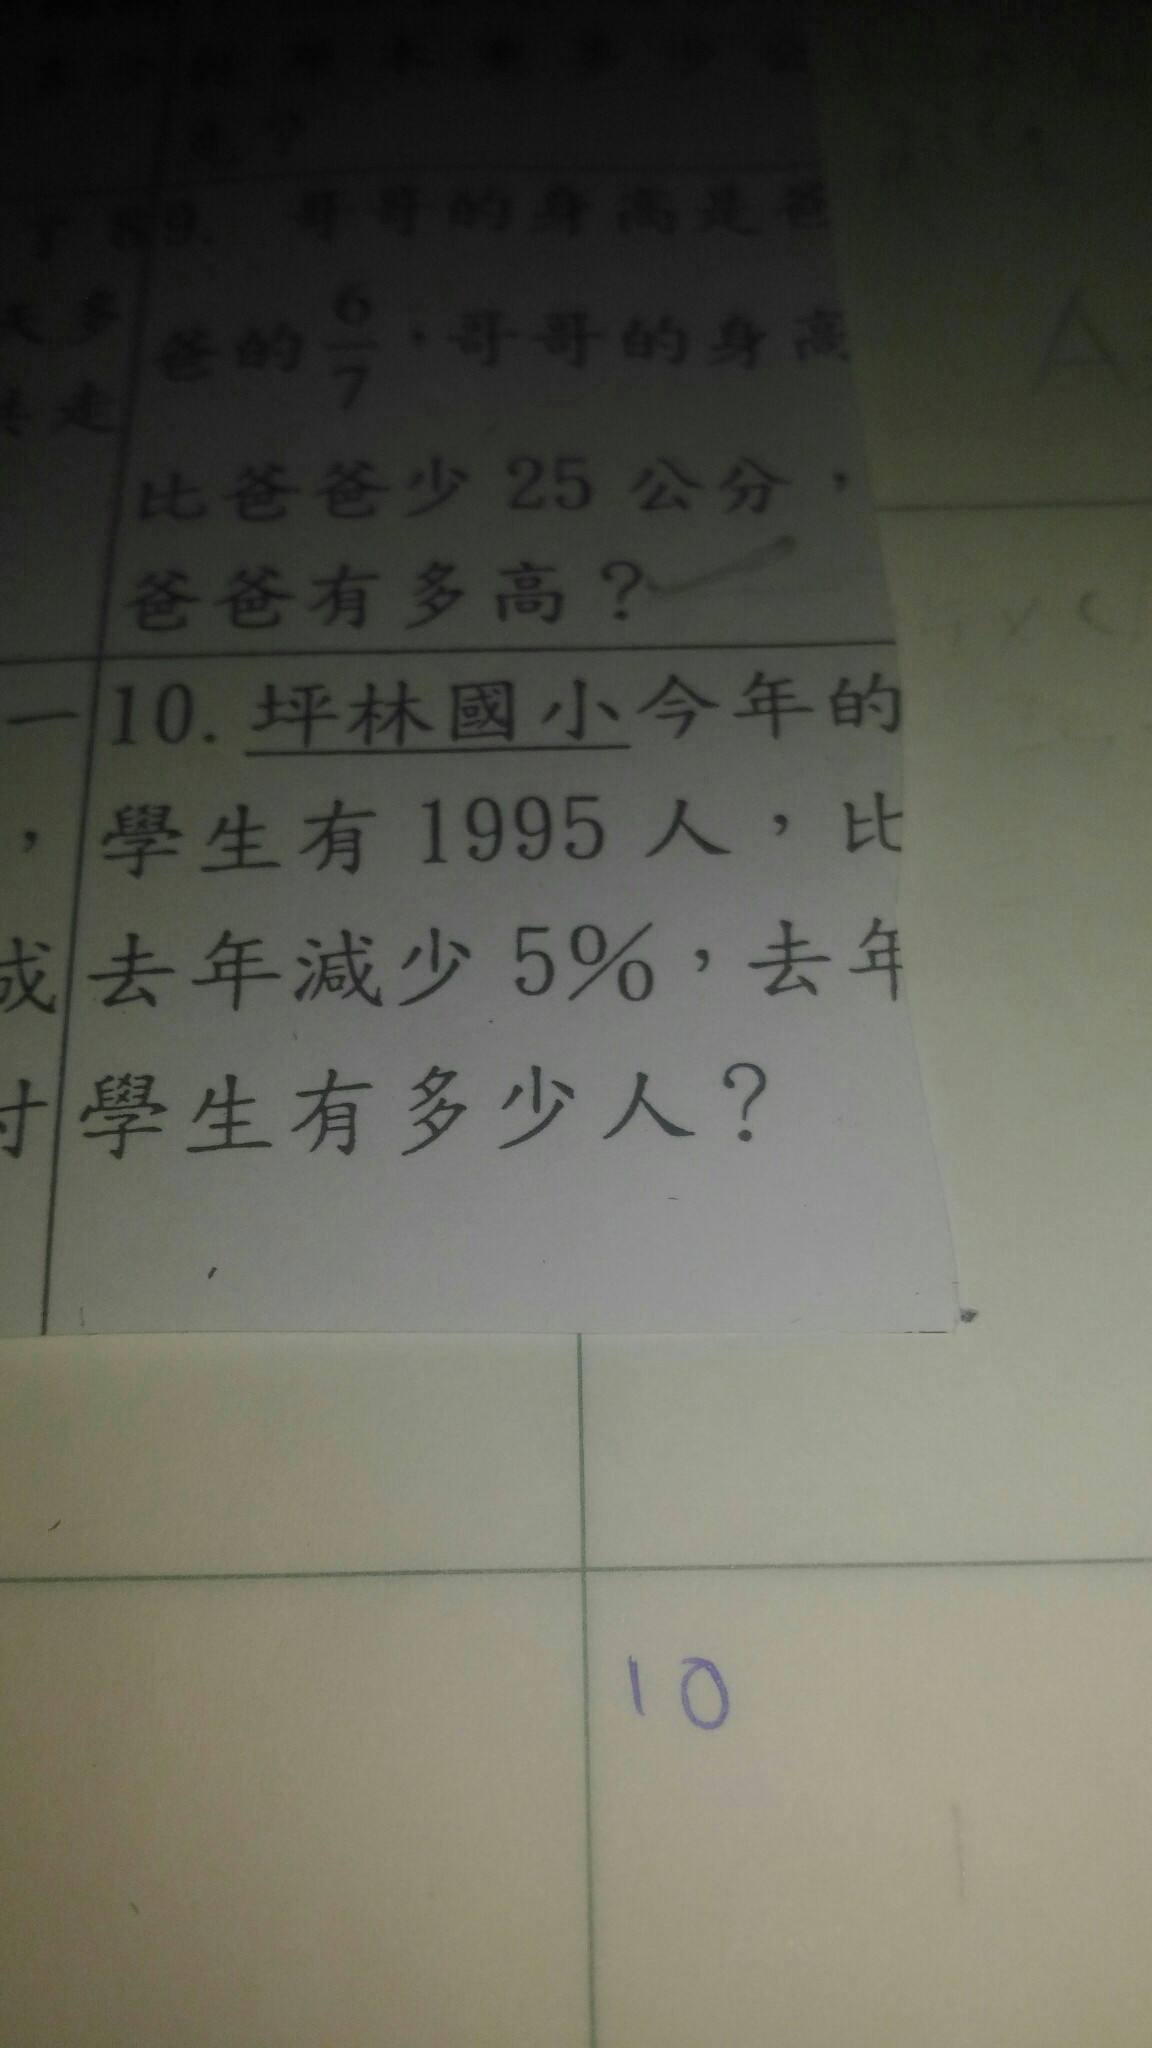 9. 哥哥的身高是爸
爸的 6/7，哥哥的身高
比爸爸少 25 公分，
爸爸有多高？
10. 坪林國小今年的
學生有 1995 人，比
去年減少 5%，去年
學生有多少人？
天多
走
一
，
成
寸
A
10